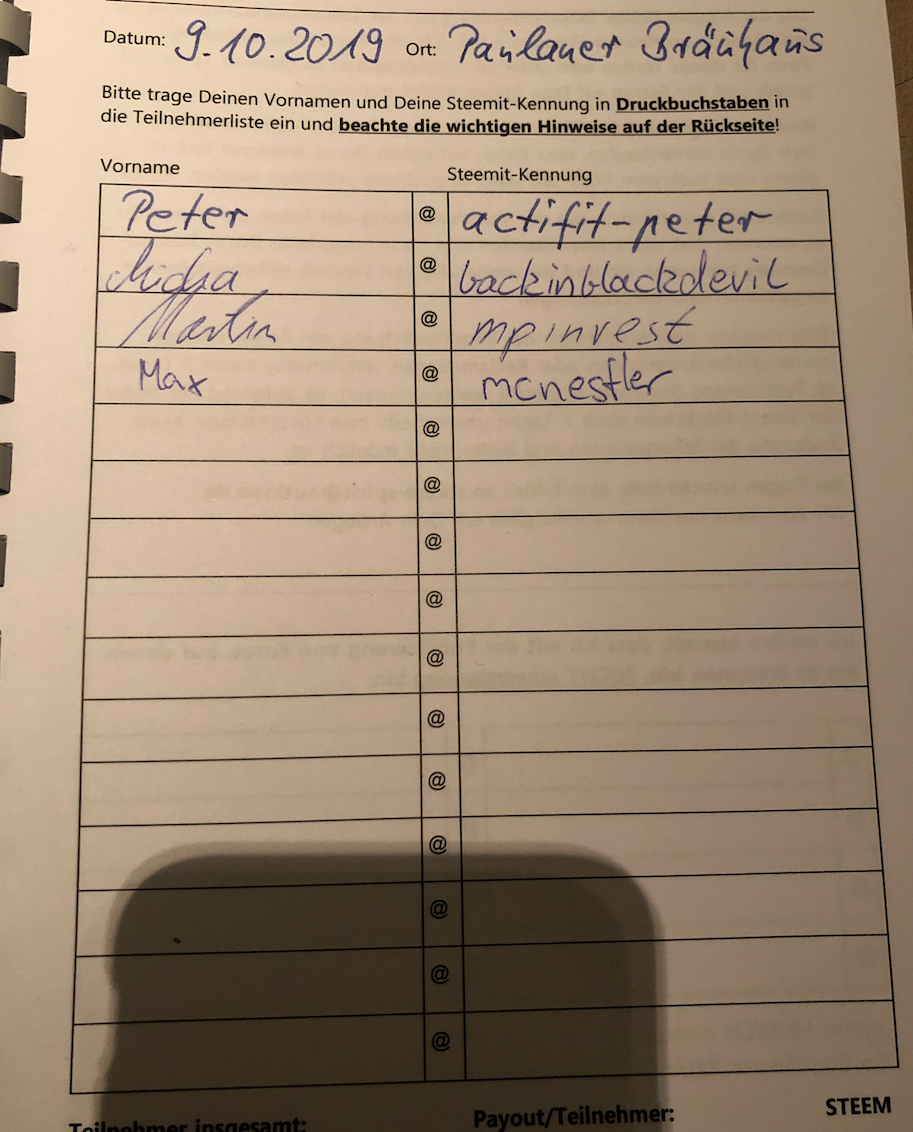 Datum: 9.10.2019 Ort: Paulaner Bräuhaus
Bitte trage Deinen Vornamen und Deine Steemit-Kennung in Druckbuchstaben in
die Teilnehmerliste ein und beachte die wichtigen Hinweise auf der Rückseite!
Vorname Steemit-Kennung
Peter @ actifit-peter
Micha @ backinblackdevil
Martin @ mpinvest
Max @ mcnestler
@
@
@
@
@
@
@
@
@
@
@
Teilnehmer insgesamt: Payout/Teilnehmer: STEEM